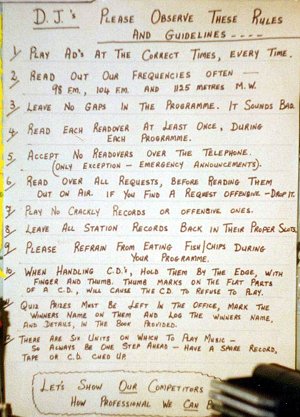 D.J.'s PLEASE OBSERVE THESE RULES
AND GUIDELINES ....
1 PLAY AD'S AT THE CORRECT TIMES, EVERY TIME.
2 READ OUT OUR FREQUENCIES OFTEN —
98 F.M., 104 F.M. AND 1125 METRES M.W.
3 LEAVE NO GAPS IN THE PROGRAMME. IT SOUNDS BAD.
4 READ EACH READOVER AT LEAST ONCE, DURING
EACH PROGRAMME.
5 ACCEPT NO READOVERS OVER THE TELEPHONE.
(ONLY EXCEPTION - EMERGENCY ANNOUNCEMENTS).
6 READ OVER ALL REQUESTS, BEFORE READING THEM
OUT ON AIR. IF YOU FIND A REQUEST OFFENSIVE - DROP IT.
7 PLAY NO CRACKLY RECORDS OR OFFENSIVE ONES.
8 LEAVE ALL STATION RECORDS BACK IN THEIR PROPER SLOTS.
9 PLEASE REFRAIN FROM EATING FISH/CHIPS DURING
YOUR PROGRAMME.
10 WHEN HANDLING C.D.'s, HOLD THEM BY THE EDGE, WITH
FINGER AND THUMB. THUMB MARKS ON THE FLAT PARTS
OF A C.D., WILL CAUSE THE C.D. TO REFUSE TO PLAY.
QUIZ PRIZES MUST BE LEFT IN THE OFFICE, MARK THE
WINNERS NAME ON THEM AND LOG THE WINNERS NAME,
AND DETAILS, IN THE BOOK PROVIDED.
THERE ARE SIX UNITS ON WHICH TO PLAY MUSIC -
SO ALWAYS BE ONE STEP AHEAD - HAVE A SPARE RECORD,
TAPE OR C.D. CUED UP.
LET'S SHOW OUR COMPETITORS
HOW PROFESSIONAL WE CAN